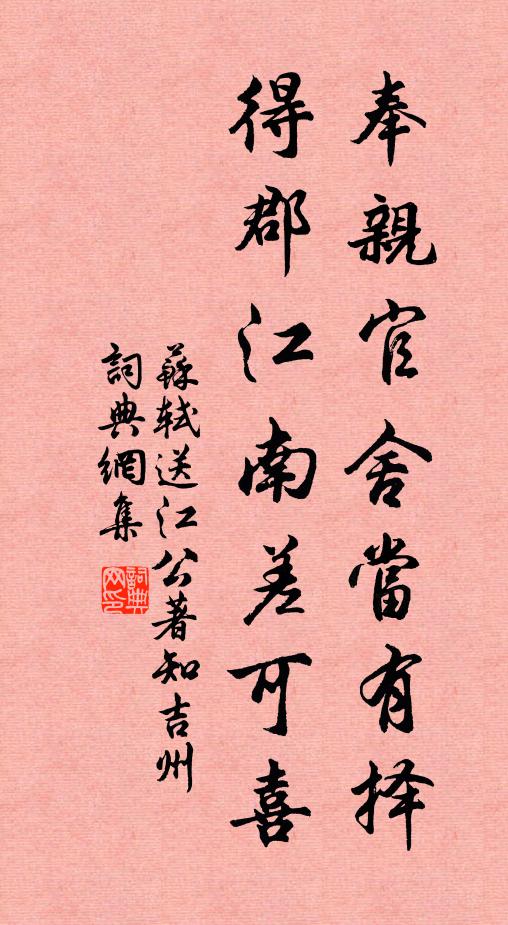 奉親官舍當有择
得郡江南差可喜
蘇轼送江公著知吉州
詞典網集
詞典网印